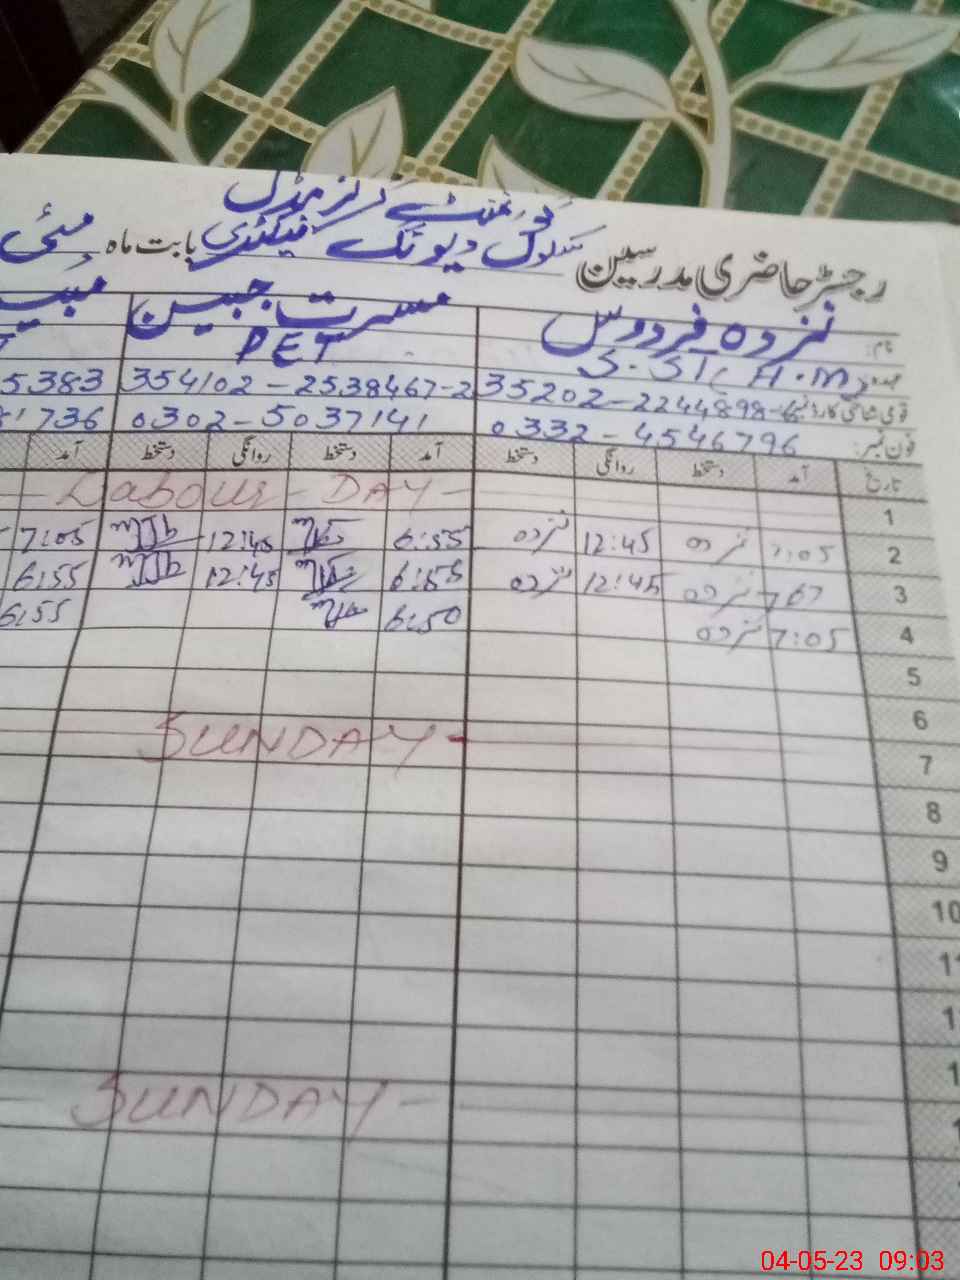 گورنمنٹ گرلز مڈل
رجسٹر حاضری مدرسین سکول دیو تک فیکٹری بابت ماہ مئی
نام: نزدہ فردوس مسرت جبین
عہدہ S.ST, H.M PET
قومی شناختی کارڈ نمبر 35202-2244898-6 354102-2538467-2 5383
فون نمبر: 0332-4546796 0302-5037141 1736
تاریخ آمد دستخط روانگی دستخط آمد دستخط روانگی دستخط آمد
1 Labour - DAY -
2 7:05 نزدہ 12:45 نزدہ 6:55 12:45 7:05
3 نزدہ 12:45 نزدہ 6:55 12:45 6:55
4 7:05 نزدہ 6:50 6:55
5
6
7 SUNDAY -
8
9
10
SUNDAY -
04-05-23 09:03